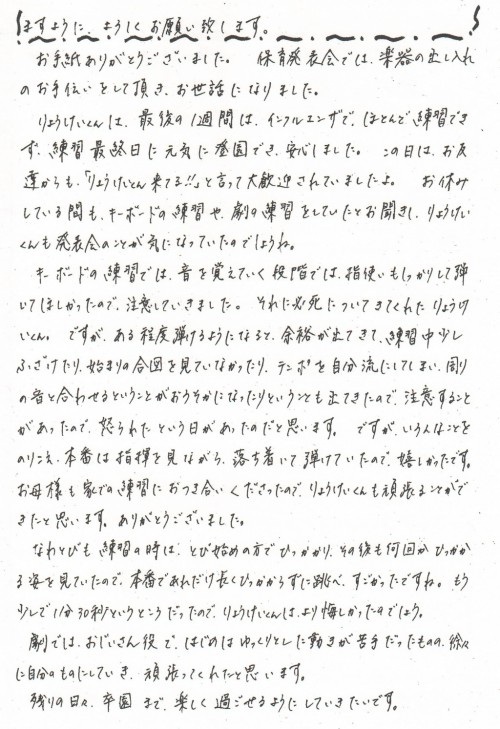 ますように、よろしくお願い致します。
お手紙ありがとうございました。 保育発表会では、楽器の出し入れ
のお手伝いをして頂き、お世話になりました。
りょうけいくんは、最後の1週間は、インフルエンザで、ほとんど練習でき
ず、練習最終日に元気に登園でき、安心しました。 この日は、お友
達からも、「りょうけいくん来てる!!」と言って大歓迎されていましたよ。 お休み
している間も、キーボードの練習や、劇の練習をしていたとお聞きし、りょうけい
くんも発表会のことが気になっていたのでしょうね。
キーボードの練習では、音を覚えていく段階では、指使いもしっかりして弾
いてほしかったので、注意していきました。 それに必死についてきてくれたりょうけ
いくん。 ですが、ある程度弾けるようになると、余裕が出てきて、練習中少し
ふざけたり、始まりの合図を見ていなかったり、テンポを自分流にしてしまい、周り
の音と合わせるということがおろそかになったりということも出てきたので、注意すること
があったので、怒られたという日があったのだと思います。 ですが、いろんなことを
のりこえ、本番は指揮を見ながら、落ち着いて弾けていたので、嬉しかったです。
お母様も家での練習におつき合いくださったので、りょうけいくんも頑張ることがで
きたと思います。ありがとうございました。
なわとびも練習の時は、とび始めの方でひっかかり、その後も何回かひっかか
る姿を見ていたので、本番であれだけ長くひっかからずに跳べ、すごかったですね。もう
少しで1分30秒というところだったので、りょうけいくんは、より悔しかったのでしょう。
劇では、おじいさん役で、はじめはゆっくりとした動きが苦手だったものの、徐々
に自分のものにしていき、頑張ってくれたと思います。
残りの日々、卒園まで、楽しく過ごせるようにしていきたいです。